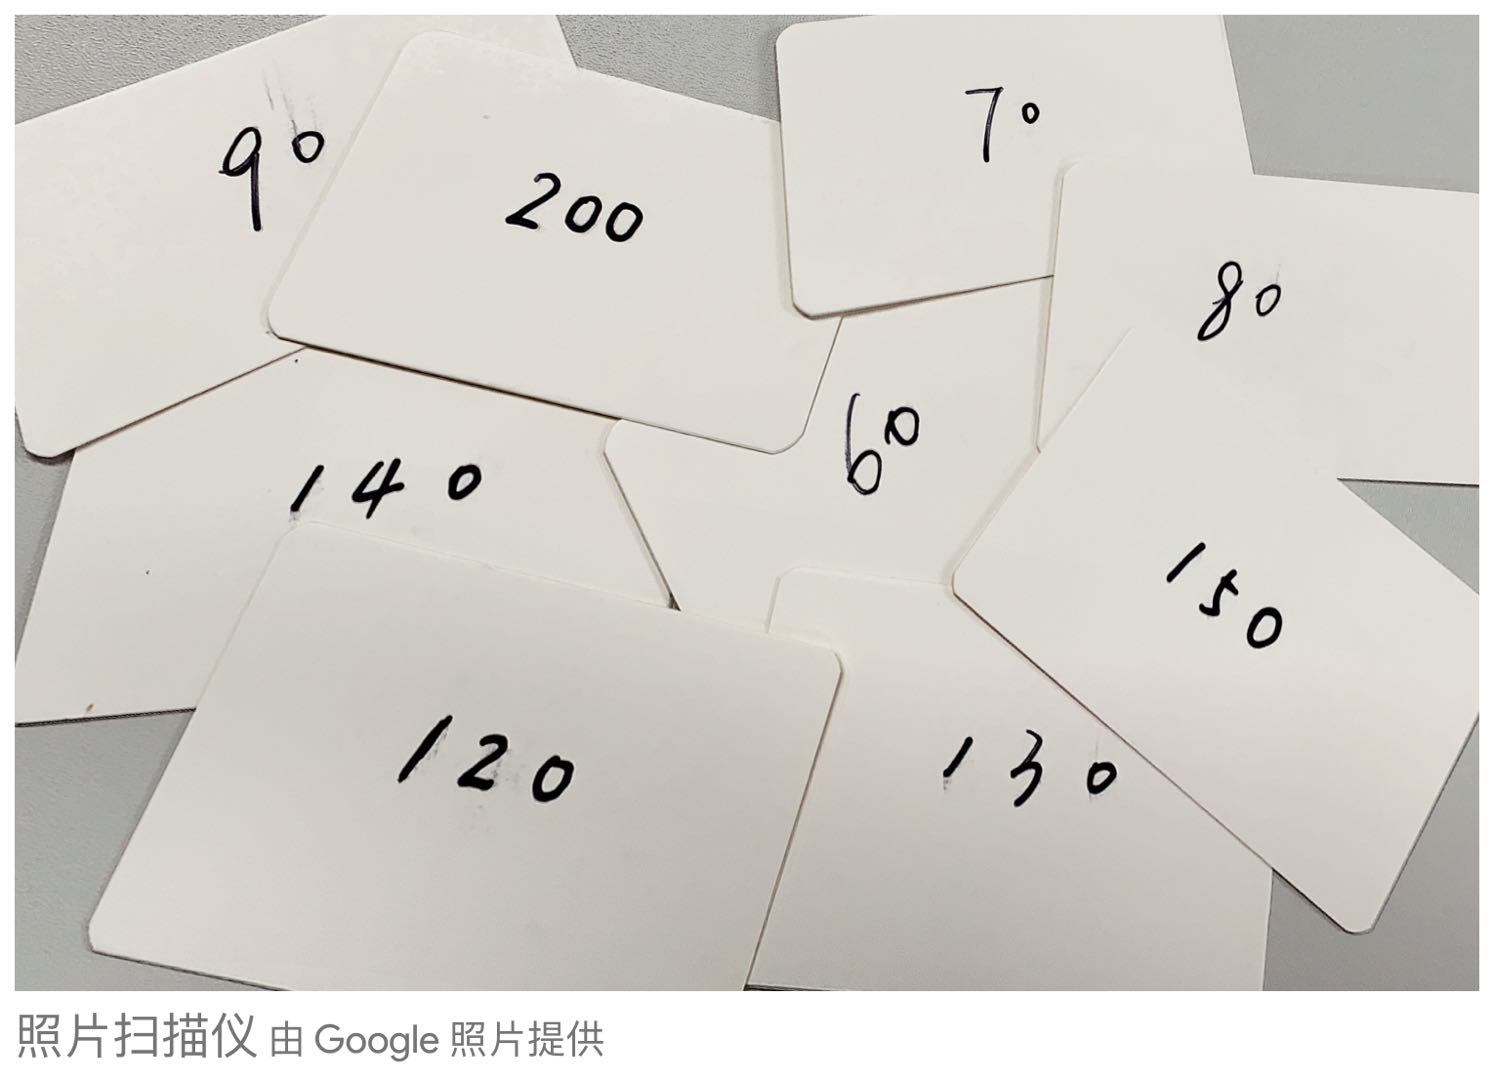 90
200
70
80
60
140
150
120
130
照片扫描仪 由 Google 照片提供